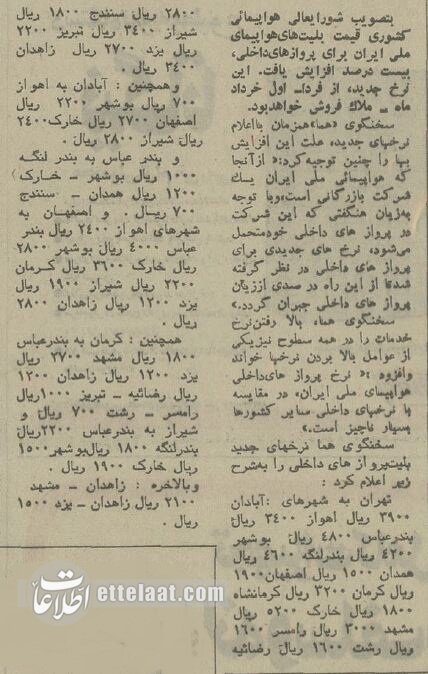 بتصویب شورایعالی هواپیمائی
کشوری قیمت بلیت‌های‌هواپیمای
ملی ایران برای پروازهای‌داخلی،
بیست درصد افزایش یافت. این
نرخ جدید، از فردا۔ اول خرداد
ماه ــ ملاك فروش خواهدبود.
سخنگوی «هما»همزمان بااعلام
نرخهای جدید، علت این افزایش
بها را چنین توجیه‌کرد:« ازآنجا
که هواپیمائی ملی ایران یك
شرکت بازرگانی است،وبا توجه
به‌زیان هنگفتی که این شرکت
در پرواز های داخلی خودمتحمل
می‌شود، نرخ های جدیدی برای
پرواز های داخلی در نظر گرفته
شدتا از این راه در صدی اززیان
پرواز های داخلی جبران گردد.»
سخنگوی هما، بالا رفتن‌نرخ
خدمات را در همه سطوح نیزیکی
از عوامل بالا بردن نرخها خواند
وافزود :« نرخ پرواز های‌داخلی
هواپیمای ملی ایران، در مقایسه
با نرخهای داخلی سایر کشورها
بسیار ناچیز است.»
سخنگوی هما نرخهای جدید
بلیت‌پرواز های داخلی را به‌شرح
زیر اعلام کرد :
تهران به شهرهای :آبادان
۳۹۰۰ ریال اهواز ۳۴۰۰ ریال
بندرعباس ۴۸۰۰ ریال بوشهر
۴۲۰۰ ریال بندرلنگه ۴۶۰۰ ریال
همدان ۱۵۰۰ ریال اصفهان۱۹۰۰
ریال کرمان ۳۲۰۰ ریال کرمانشاه
۱۸۰۰ ریال خارک ۵۲۰۰ ریال
مشهد ۳۰۰۰ ریال رامسر ۱۶۰۰
ریال رشت ۱۶۰۰ ریال رضائیه
۲۸۰۰ ریال سنندج ۱۸۰۰ ریال
شیراز ۳۴۰۰ ریال تبریز ۲۲۰۰
ریال یزد ۲۷۰۰ ریال زاهدان
۳۴۰۰ ریال .
وهمچنین : آبادان به اهواز
۷۰۰ ریال بوشهر ۲۲۰۰ ریال
اصفهان ۲۷۰۰ ریال خارک۲۴۰۰
ریال شیراز ۲۸۰۰ ریال .
و بندر عباس به بندر لنگه
۱۰۰۰ ریال بوشهر ــ خارک)
۱۲۰۰ ریال همدان ــ سنندج
۷۰۰ ریال . و اصفهان به
شهرهای اهواز ۲۴۰۰ ریال بندر
عباس ۴۰۰۰ ریال بوشهر ۲۸۰۰
ریال خارک ۳۶۰۰ ریال کرمان
۲۲۰۰ ریال شیراز ۱۹۰۰ ریال
یزد ۱۲۰۰ ریال زاهدان ۲۸۰۰
ریال .
همچنین : کرمان به بندرعباس
۱۸۰۰ ریال مشهد ۳۷۰۰ ریال
یزد ۱۲۰۰ ریال زاهدان ۱۳۰۰
ریال رضائیه ــ تبریز ۱۰۰۰ریال
رامسر ــ رشت ۷۰۰ ریال و
شیراز به بندرعباس ۲۲۰۰ریال
بندرلنگه ۱۸۰۰ ریال‌بوشهر۱۵۰۰
ریال خارک ۱۹۰۰ ریال .
وبالاخره : زاهدان ــ مشهد
۲۱۰۰ ریال زاهدان ــ یزد ۱۵۰۰
ریال .
اطلاعات ettelaat.com